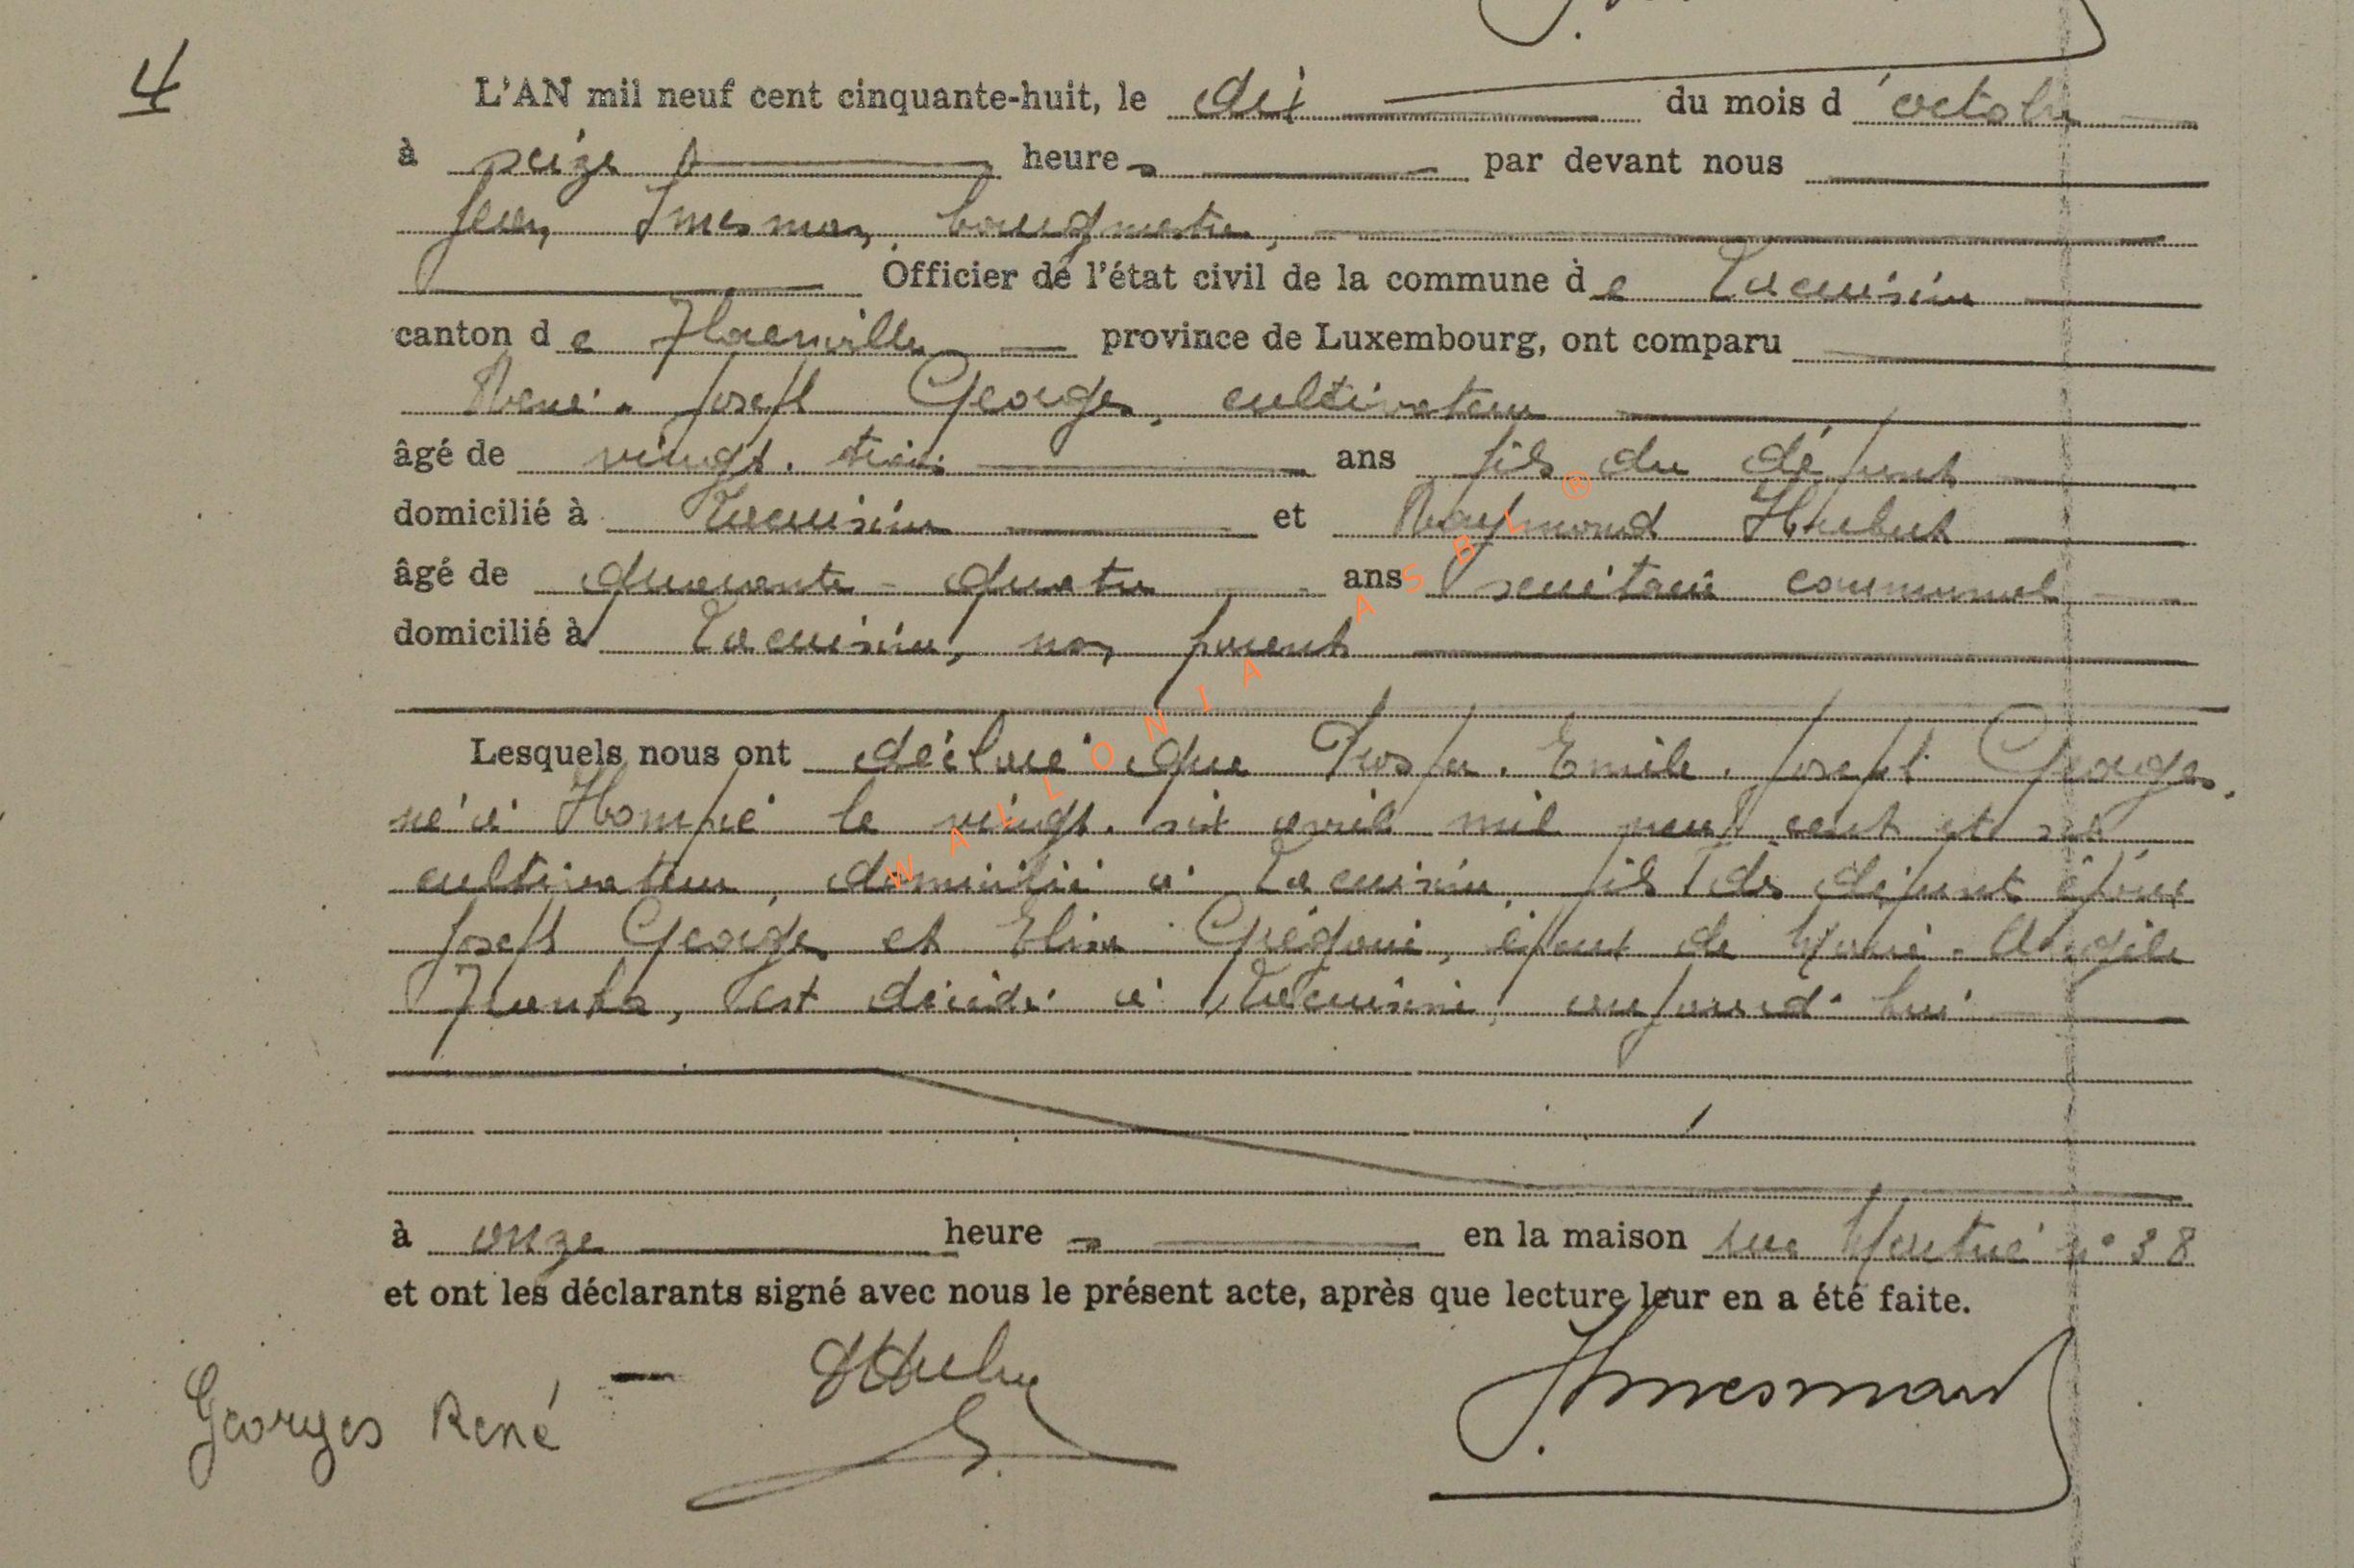 4
L'AN mil neuf cent cinquante-huit, le dix du mois d'octobre
à seize heures par devant nous
Jean Imesman, bourgmestre,
Officier de l'état civil de la commune de Lacuisine
canton de Florenville province de Luxembourg, ont comparu
René-Joseph Georges, cultivateur
âgé de vingt-trois ans fils du défunt
domicilié à Lacuisine et Raymond Hubert
âgé de quarante-quatre ans secrétaire communal
domicilié à Lacuisine, non parent
Lesquels nous ont déclaré que Prosper-Emile-Joseph Georges,
né à Hompré le vingt-six avril mil neuf cent et six
cultivateur, domicilié à Lacuisine, fils des défunts époux
Joseph Georges et Elise Grégoire, époux de Marie-Angèle
est décédé à Lacuisine, aujourd'hui
à onze heures en la maison rue n° 38
et ont les déclarants signé avec nous le présent acte, après que lecture leur en a été faite.
Georges René
Imesman
WALLONIA ASBL ®